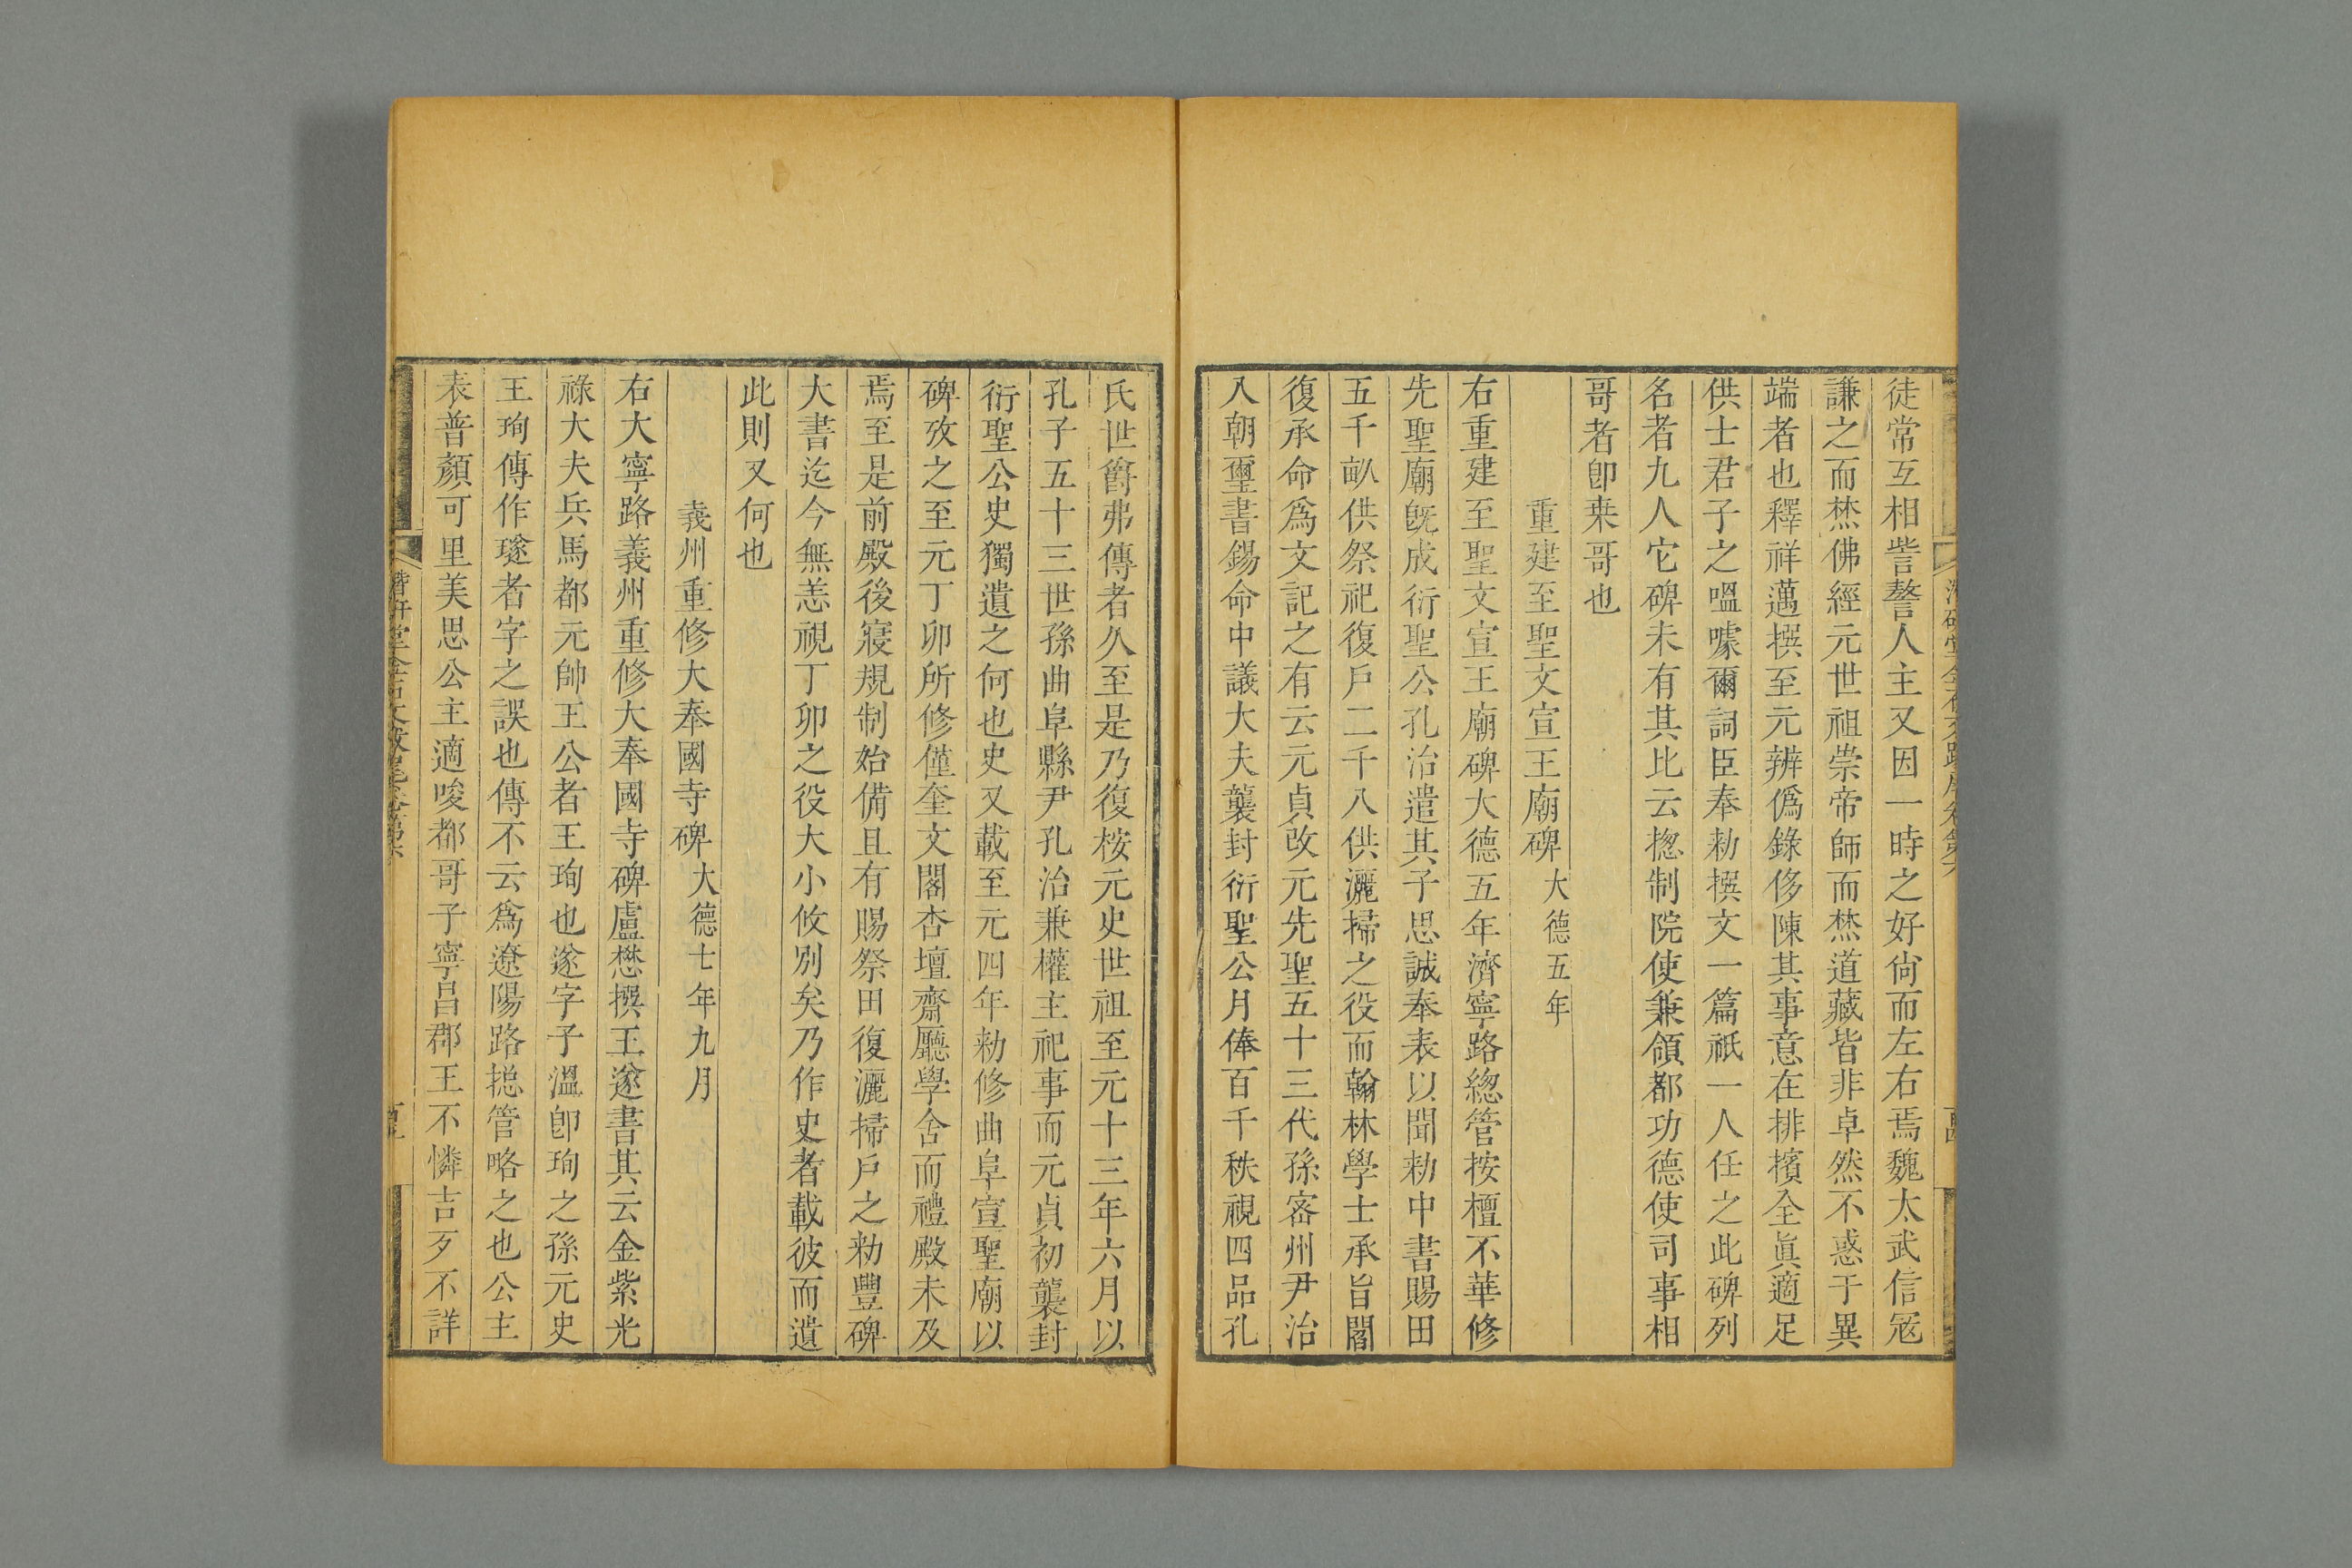 徒常互相訾謷人主又因一時之好尙而左右焉魏太武信冦
謙之而焚佛經元世祖崇帝師而焚道藏皆非卓然不惑于異
端者也釋祥邁撰至元辨僞錄侈陳其事意在排擯全眞適足
供士君子之嗢噱爾詞臣奉勑撰文一篇祇一人任之此碑列
名者九人它碑未有其比云揔制院使兼領都功德使司事相
哥者卽桒哥也
重建至聖文宣王廟碑大德五年
右重建至聖文宣王廟碑大德五年濟寧路緫管按檀不華修
先聖廟旣成衍聖公孔治遣其子思誠奉表以聞勑中書賜田
五千畝供祭祀復戶二千八供灑掃之役而翰林學士承旨閻
復承命爲文記之有云元貞改元先聖五十三代孫密州尹治
入朝璽書錫命中議大夫襲封衍聖公月俸百千秩視四品孔
氏世爵弗傳者久至是乃復桉元史世祖至元十三年六月以
孔子五十三世孫曲阜縣尹孔治兼權主祀事而元貞初襲封
衍聖公史獨遺之何也史又載至元四年勑修曲阜宣聖廟以
碑攷之至元丁卯所修僅奎文閣杏壇齋廳學舍而禮殿未及
焉至是前殿後寢規制始備且有賜祭田復灑掃戶之勑豐碑
大書迄今無恙視丁卯之役大小攸別矣乃作史者載彼而遺
此則又何也
義州重修大奉國寺碑大德七年九月
右大寧路義州重修大奉國寺碑盧懋撰王遂書其云金紫光
祿大夫兵馬都元帥王公者王珣也遂字子溫卽珣之孫元史
王珣傳作璲者字之誤也傳不云爲遼陽路揔管略之也公主
表普顏可里美思公主適唆都哥子寧昌郡王不憐吉歹不詳